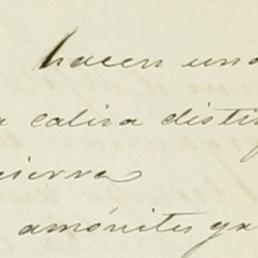 hacen una
a caliza distin
sierra
amónites ya